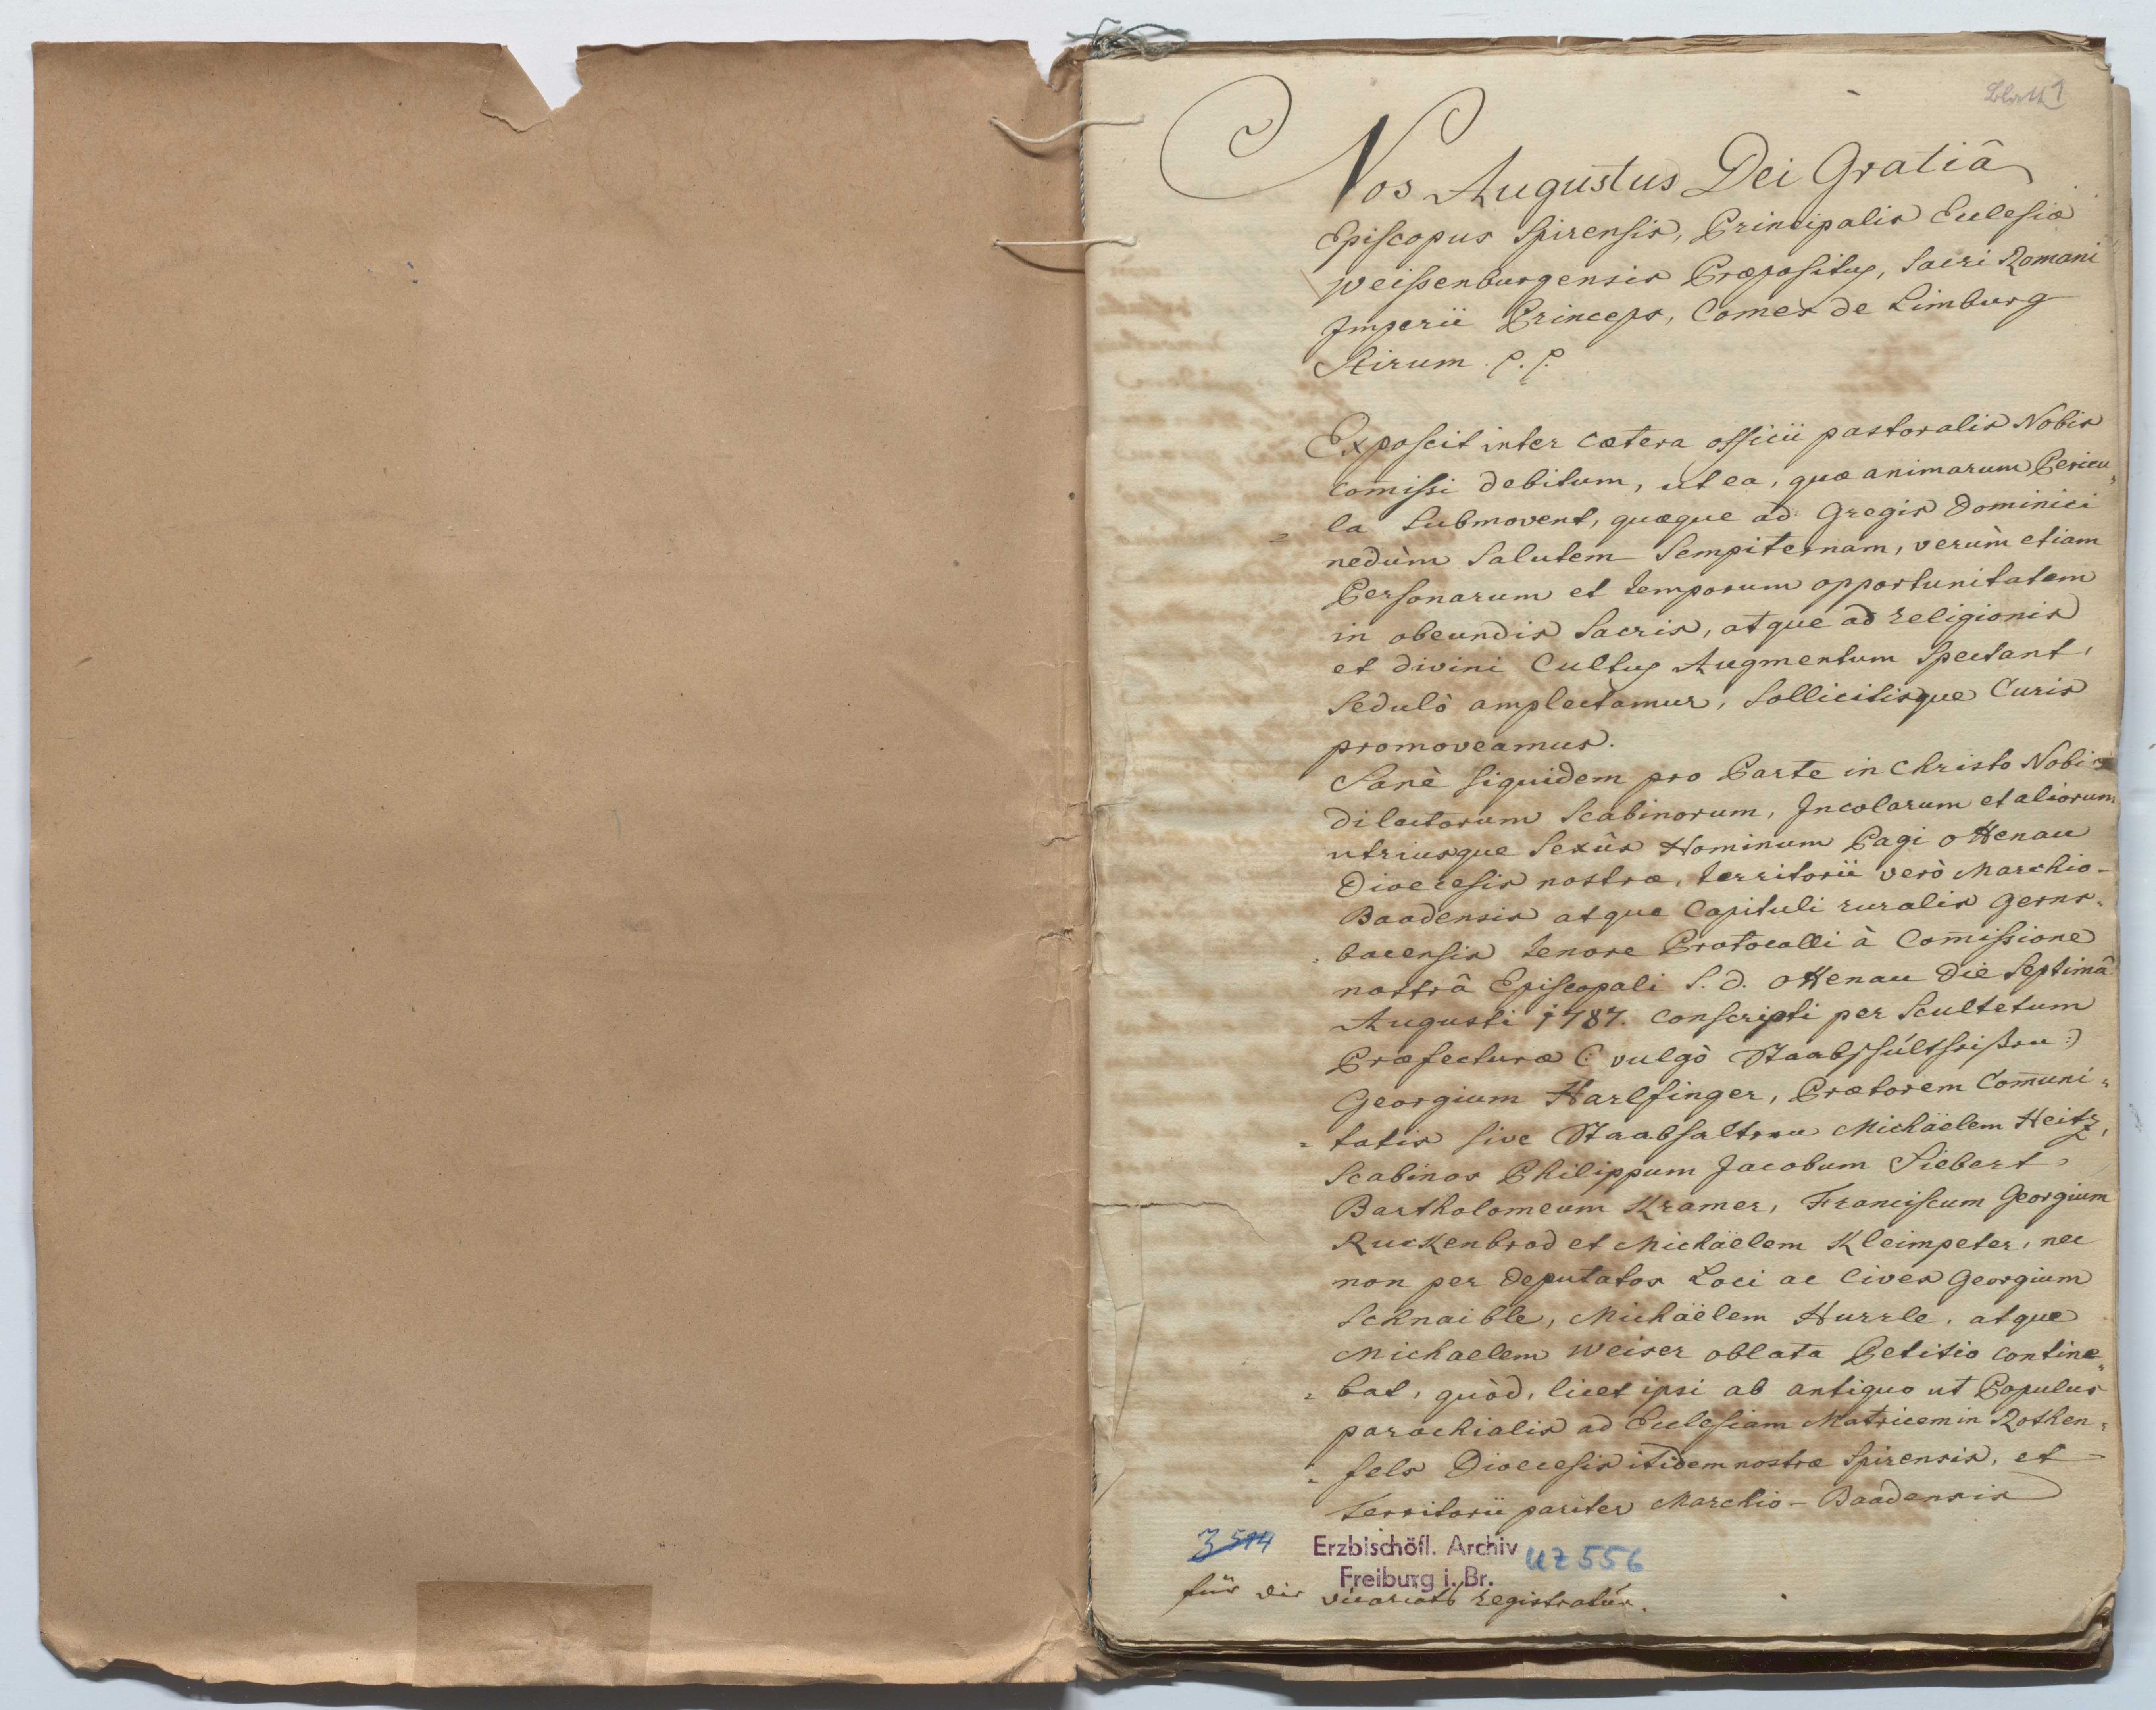 Blatt 1
Nos Augustus Dei Gratiâ
Episcopus Spirensis, Principalis Ecclesiæ
Weissenburgensis Præpositus, Sacri Romani
Imperii Princeps, Comes de Limburg
Stirum. p. p.
Exposcit inter cætera officii pastoralis Nobis
com̅issi debitum, ut ea, quæ animarum Pericu„
la submovent, quæque ad Gregis Dominici
nedùm Salutem Sempiternam, verùm etiam
Personarum et temporum opportunitatem
in obeundis Sacris, atque ad religionis
et divini Cultus Augmentum Spectant,
Sedulò amplectamur, Sollicitisque Curis
promoveamus.
Sanè siquidem pro Parte in Christo Nobis
dilectorum Scabinorum, Incolarum et aliorum
utriusque Sexûs Hominum Pagi Ottenau
Dioecesis nostræ, territorii verò Marchio-
Baadensis atque Capituli ruralis Gerns„
„bacensis tenore Protocolli à Com̅issione
nostrâ Episcopali S. d. Ottenau Die Septimâ
Augusti 1787. conscripti per Scultetum
Præfecturæ (: vulgò Staabsschultheißen :)
Georgium Harlfinger, Prætorem Com̅uni„
„tatis sive Staabhalteren Michäelem Heitz,
Scabinos Philippum Jacobum Siebert,
Bartholomeum Kramer, Franciscum Georgium
Ruckenbrod et Michäelem Kleimpeter, nec
non per Deputatos Loci ac Cives Georgium
Schnaible, Michäelem Hurrle, atque
Michaelem Weiser oblata Petitio contine„
„bat, quòd, licet ipsi ab antiquo ut Populus
parochialis ad Ecclesiam Matricem in Rothen„
„fels Dioecesis itidem nostræ Spirensis, et
territorii pariter Marchio-Baadensis
3514
Erzbischöfl. Archiv UZ 556
Freiburg i. Br.
für die vicariats registratur.